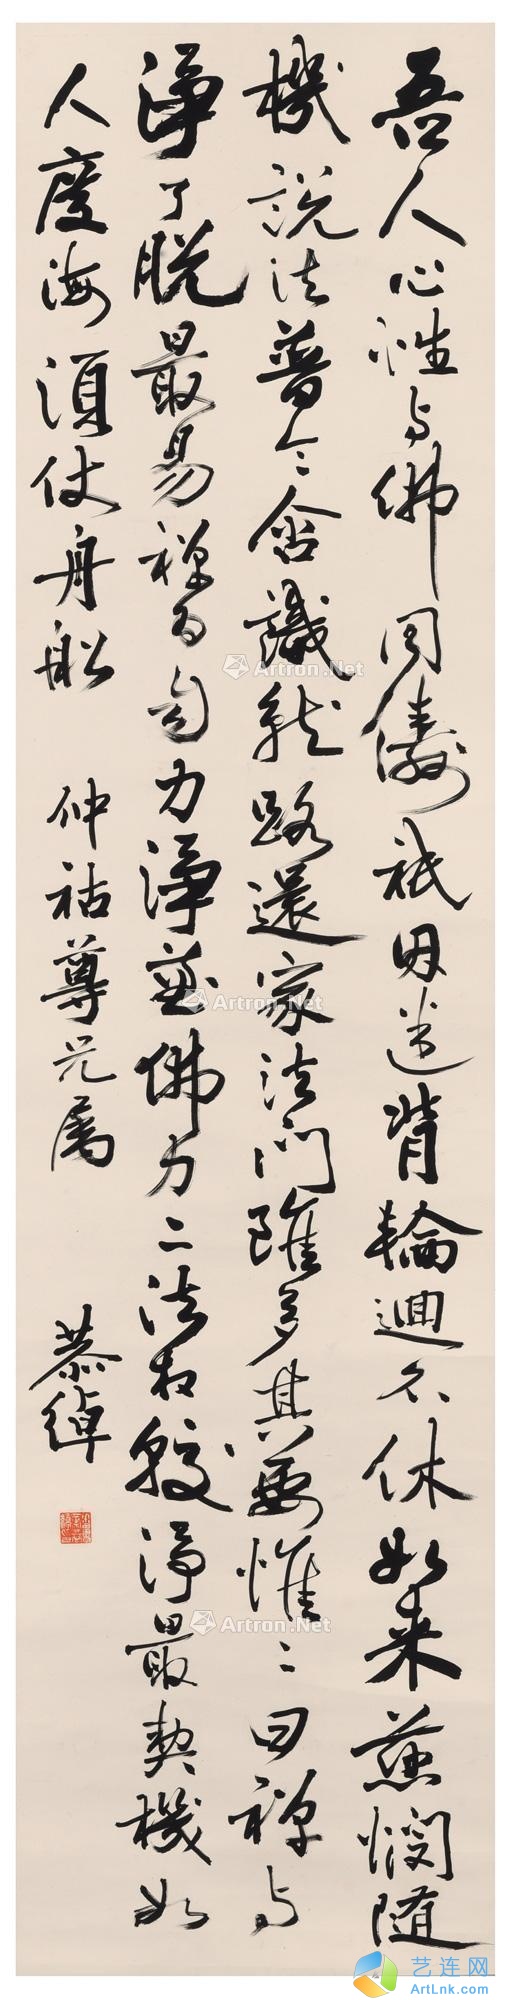 吾人心性与佛同儔祇因迷背輪迴不休如来慈憫随
機說法普令含識就路還家法門雖多其要惟二曰禅与
淨了脱最易禅唯自力淨兼佛力二法相較淨最契機如
人度海須仗舟船
仲祜尊兄属
慕韓
Artron.Net
Artron.Net
Artron.Net
艺连网
ArtLnk.com